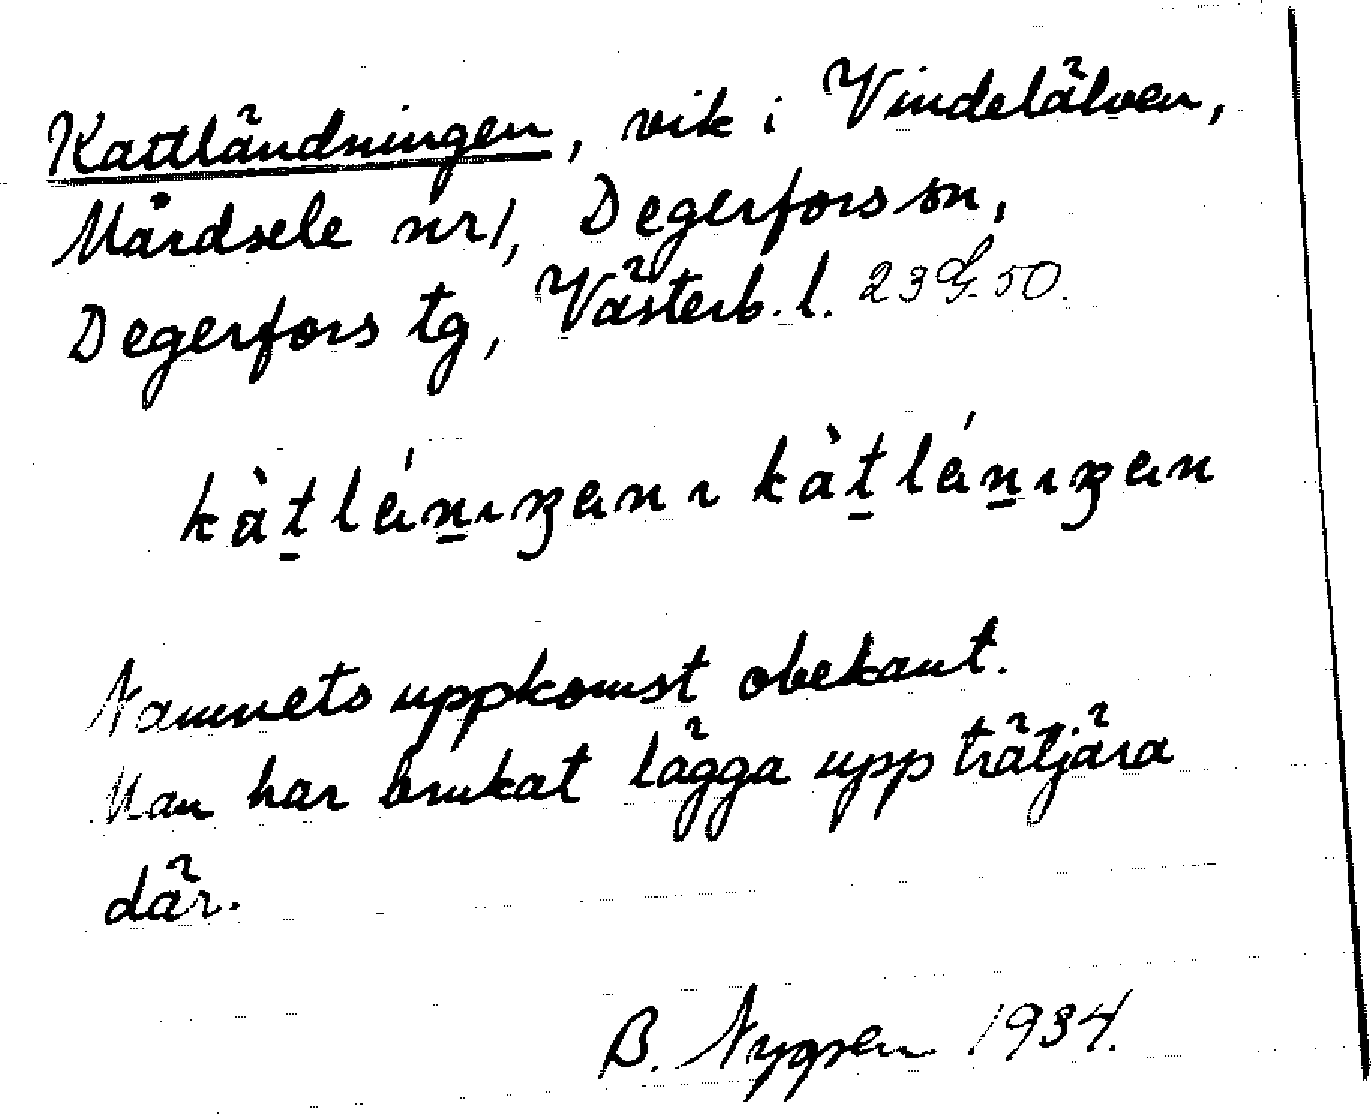 Kattländningen, vik i Vindelälven,
Mårdsele nr 1, Degerfors sn,
Degerfors tg, Västerb. l. 23 G. 50.
kàt̠lén̠ıŋen ı kàt̠lén̠ıŋen
Namnets uppkomst obekant.
Man har brukat lägga upp trätjära
där.
B. Nygren 1934.